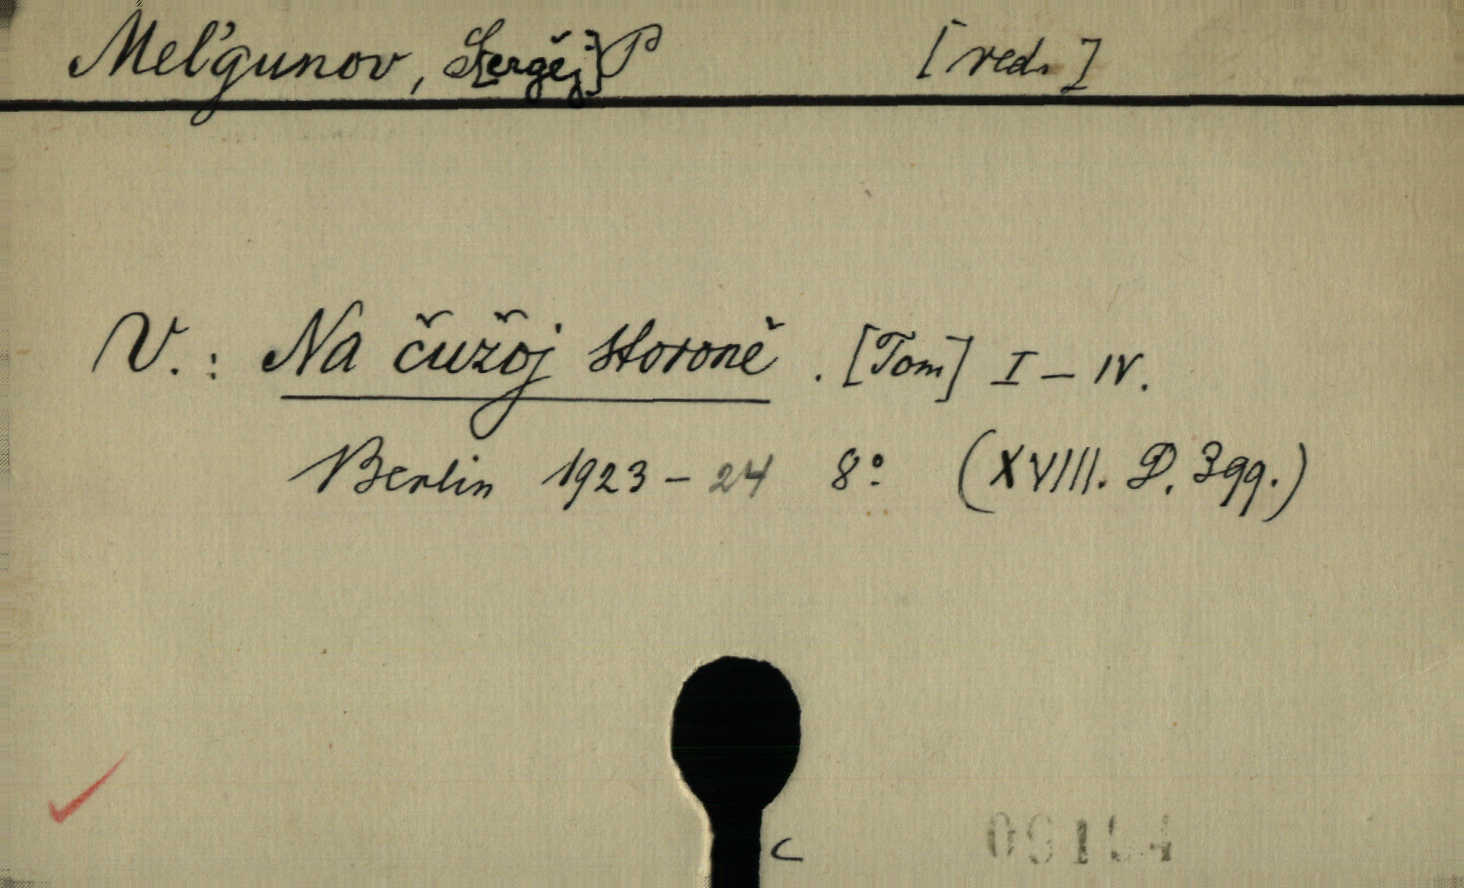 Mel'gunov, S[ergěj] P [red.]
V.: Na čužoj storoně. [Tom] I – IV.
Berlin 1923 – 24 8° (XVIII. D. 399.)
c